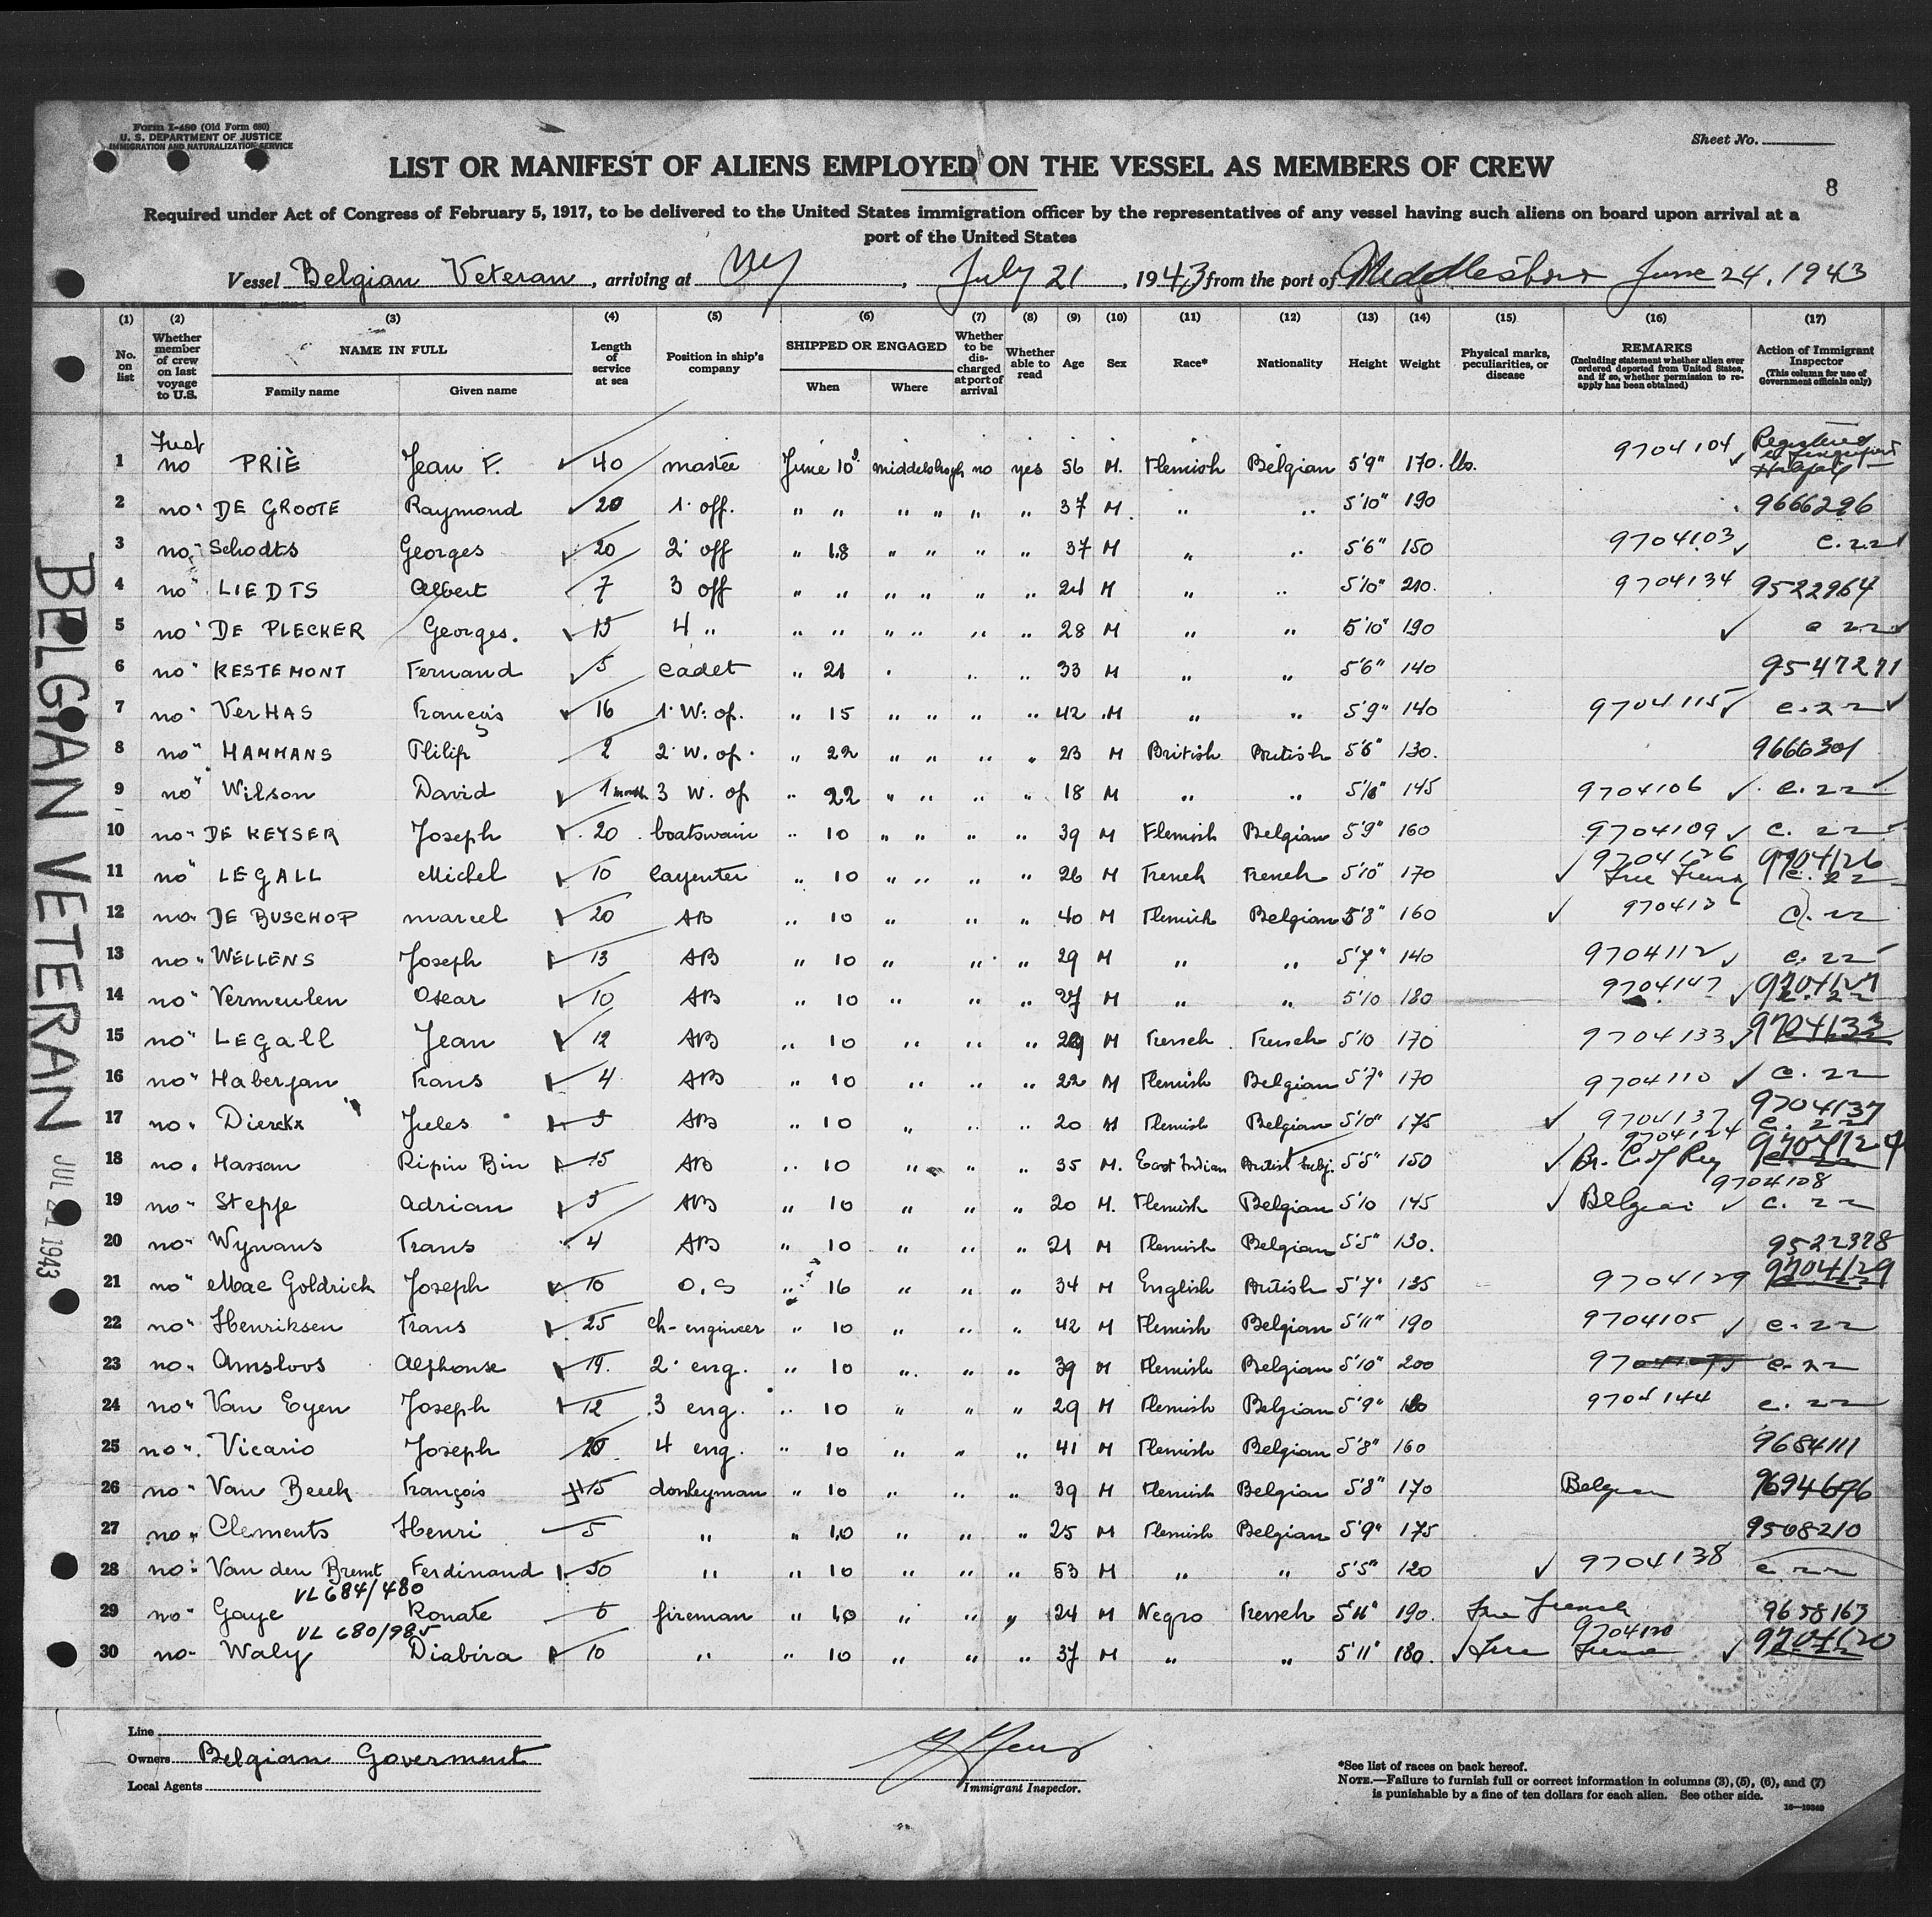 Form I-480 (Old Form 680)
U. S. DEPARTMENT OF JUSTICE
IMMIGRATION AND NATURALIZATION SERVICE
Sheet No.
LIST OR MANIFEST OF ALIENS EMPLOYED ON THE VESSEL AS MEMBERS OF CREW
8
Required under Act of Congress of February 5, 1917, to be delivered to the United States immigration officer by the representatives of any vessel having such aliens on board upon arrival at a
port of the United States
Vessel Belgian Veteran, arriving at NY, July 21, 1943 from the port of Middlesboro June 24, 1943
(1) (2) (3) (4) (5) (6) (7) (8) (9) (10) (11) (12) (13) (14) (15) (16) (17)
No. on list
Whether member of crew on last voyage to U.S.
NAME IN FULL
Family name
Given name
Length of service at sea
Position in ship's company
SHIPPED OR ENGAGED
When
Where
Whether to be discharged at port of arrival
Whether able to read
Age
Sex
Race*
Nationality
Height
Weight
Physical marks, peculiarities, or disease
REMARKS
(Including statement whether alien ever ordered deported from United States, and if so, whether permission to reapply has been obtained)
Action of Immigrant Inspector
(This column for use of Government officials only)
1 no PRIÈ Jean F. 40 master June 10 middelsbrogh no yes 56 M. Flemish Belgian 5'9" 170. lbs. 9704104 Registered
2 no " DE GROOTE Raymond 20 1' off. " " " " " " 37 M. " " 5'10" 190 9666296
3 no " Schodts Georges 20 2' off " 18 " " " " 37 M " " 5'6" 150 9704103 c. 22
4 no " LIEDTS Albert 7 3 off " " " " " " 24 M " " 5'10" 210. 9704134 9522964
5 no " DE PLECKER Georges. 15 4 " " " " " " " 28 M " " 5'10" 190 c 22
6 no " KESTEMONT Fernand 5 cadet " 21 " " " 33 M " " 5'6" 140 9547271
7 no " VerHAS François 16 1' W. op. " 15 " " " " 42 M " " 5'9" 140 9704115 c. 22
8 no " HAMMANS Philip 2 2' W. op. " 22 " " " " 23 M British British 5'6" 130. 9666301
9 no " Wilson David 1 month 3 W. op " 22 " " " " 18 M " " 145 9704106 c. 22
10 no " DE KEYSER Joseph 20 boatswain " 10 " " " " 39 M Flemish Belgian 5'9" 160 9704109 c. 22
11 no " LEGALL Michel 10 Carpenter " 10 " " " " 26 M French French 5'10" 170 9704126 9704126 c. 22
12 no " DE BUSCHOP marcel 20 AB " 10 " " " 40 M Flemish Belgian 5'8" 160 c. 22
13 no " WELLENS Joseph 13 AB " 10 " " " 29 M " " 5'7" 140 9704112 c. 22
14 no " Vermeulen Oscar 10 AB " 10 " " " 27 M " " 5'10 180 9704147 c. 22
15 no " LEGall Jean 12 AB " 10 " " " M French French 5'10 170 9704133 9704133
16 no " Haberjan Frans 4 AB " 10 " " " 22 M Flemish Belgian 5'7" 170 9704110 c. 22
17 no " Dierckx Jules AB " 10 " " " 20 M Flemish Belgian 5'10" 175 9704137 9704137 c. 22
18 no " Hassan Ripin Bin 15 AB " 10 " " " 35 M. East Indian British Subj. 5'5" 150 9704124 Br. 9704124
19 no " Steppe Adrian 3 AB " 10 " " " 20 M. Flemish Belgian 5'10 145 Belgian 9704108 c. 22
20 no " Wynans Frans 4 AB " 10 " " " 21 M Flemish Belgian 5'5" 130. 9522378
21 no " Mac Goldrick Joseph 10 O.S " 16 " " " 34 M English British 5'7" 135 9704129 9704129
22 no " Henriksen Frans 25 ch-engineer " 10 " " " 42 M Flemish Belgian 5'11" 190 9704105 c. 22
23 no " Amsloos Alphonse 19. 2' eng. " 10 " " " 39 M Flemish Belgian 5'10" 200 c. 22
24 no " Van Eyen Joseph 12 3 eng. " 10 " " " 29 M Flemish Belgian 5'9" 9704144 c. 22
25 no " Vicario Joseph 20 4 eng. " 10 " " " 41 M Flemish Belgian 5'8" 160 9684111
26 no " Van Beeck François 15 donkeyman " 10 " " " 39 M Flemish Belgian 5'8" 170 Belgian 9694676
27 no " Clements Henri 5 " " 10 " " " 25 M Flemish Belgian 5'9" 175 9568210
28 no " Van den Bremt Ferdinand 30 " " 10 " " " 53 M " " 5'5" 120 9704138 c 22
VL 684/480
29 no " Gaye Konate 6 fireman " 10 " " " 24 M Negro French 5'11" 190. Free French 9658163
VL 680/985
30 no " Waly Diabira 10 " " 10 " " " 37 M " " 5'11" 180. Free French 9704120 9704120
BELGIAN VETERAN JUL 21 1943
Line
Owners Belgian Goverment
Local Agents
Immigrant Inspector.
*See list of races on back hereof.
NOTE.—Failure to furnish full or correct information in columns (3), (5), (6), and (7)
is punishable by a fine of ten dollars for each alien. See other side.